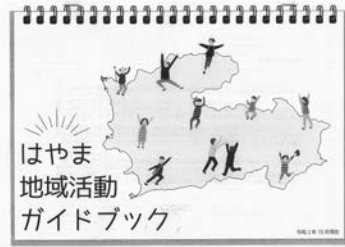 はやま
地域活動
ガイドブック
令和2年10月現在